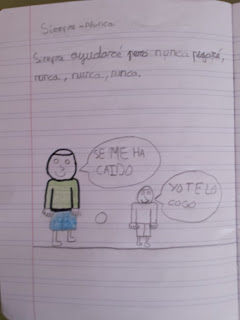 Siempre - Nunca
Siempre ayudaré pero nunca pegaré,
nunca, nunca, nunca.
SE ME HA
CAIDO
YO TE LO
COGO